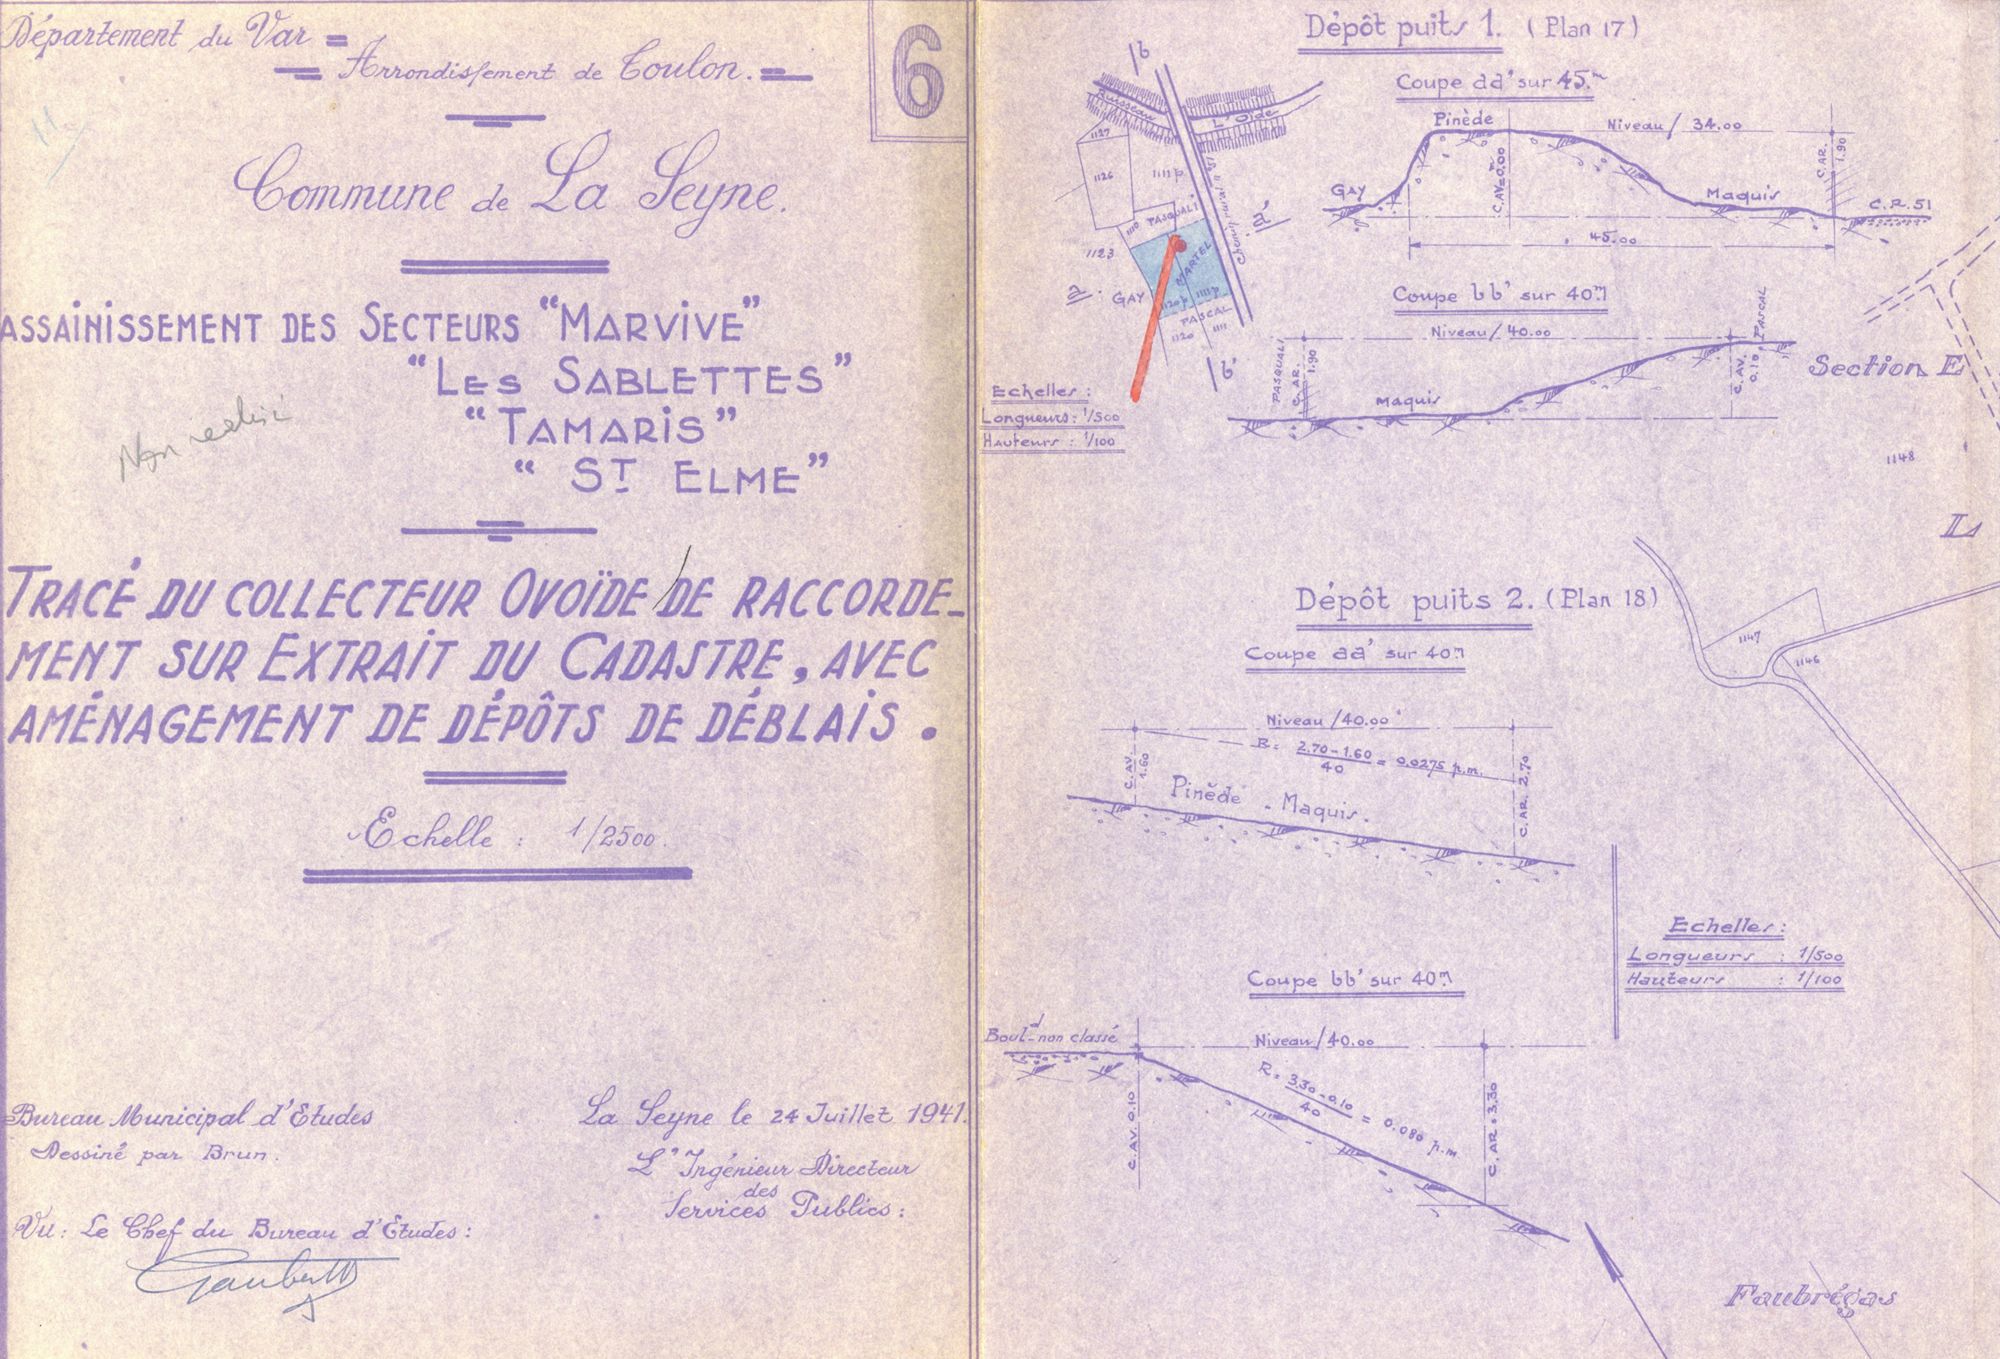 Département du Var
Arrondissement de Toulon.
6
11
Commune de La Seyne.
ASSAINISSEMENT DES SECTEURS "MARVIVE"
"LES SABLETTES"
"TAMARIS"
"ST ELME"
Non
TRACÉ DU COLLECTEUR OVOÏDE / DE RACCORDE-
MENT SUR EXTRAIT DU CADASTRE, AVEC
AMÉNAGEMENT DE DÉPÔTS DE DÉBLAIS.
Echelle : 1/2500.
Bureau Municipal d'Etudes
Dessiné par Brun.
Vu : Le Chef du Bureau d'Etudes :
La Seyne le 24 Juillet 1941.
L'Ingénieur Directeur
des
Services Publics :
Dépôt puits 1. (Plan 17)
b
Ruisseau
L'Oïde
1127
1126
1111 p.
1110
PASQUALI
1123
a'
Chemin rural n° 51
MARTEL
a
GAY
1120 p.
1111 p.
PASCAL
1120
1111
b'
Echelles :
Longueurs : 1/500
Hauteurs : 1/100
Coupe aa' sur 45.m
Pinède
Niveau / 34.00
C.AV=0,00
C.AR.
1.90
GAY
Maquis
C.R.51
45.00
Coupe bb' sur 40m
Niveau / 40.00
PASQUALI
C.AR.
1.90
Maquis
C.AV.
0.10
PASCAL
Section E
1148
L
Dépôt puits 2. (Plan 18)
Coupe aa' sur 40m
1147
1146
Niveau / 40.00
R = 2.70 - 1.60
40
= 0.0275 p.m.
C.AV.
1.60
C.AR. 2.70
Pinède - Maquis.
Echelles :
Longueurs : 1/500
Hauteurs : 1/100
Coupe bb' sur 40m
Boul.d non classé
Niveau / 40.00
R = 3.30 - 0.10
40
= 0.080 p.m
C.AV. 0.10
C.AR. 3.30
Faubrégas